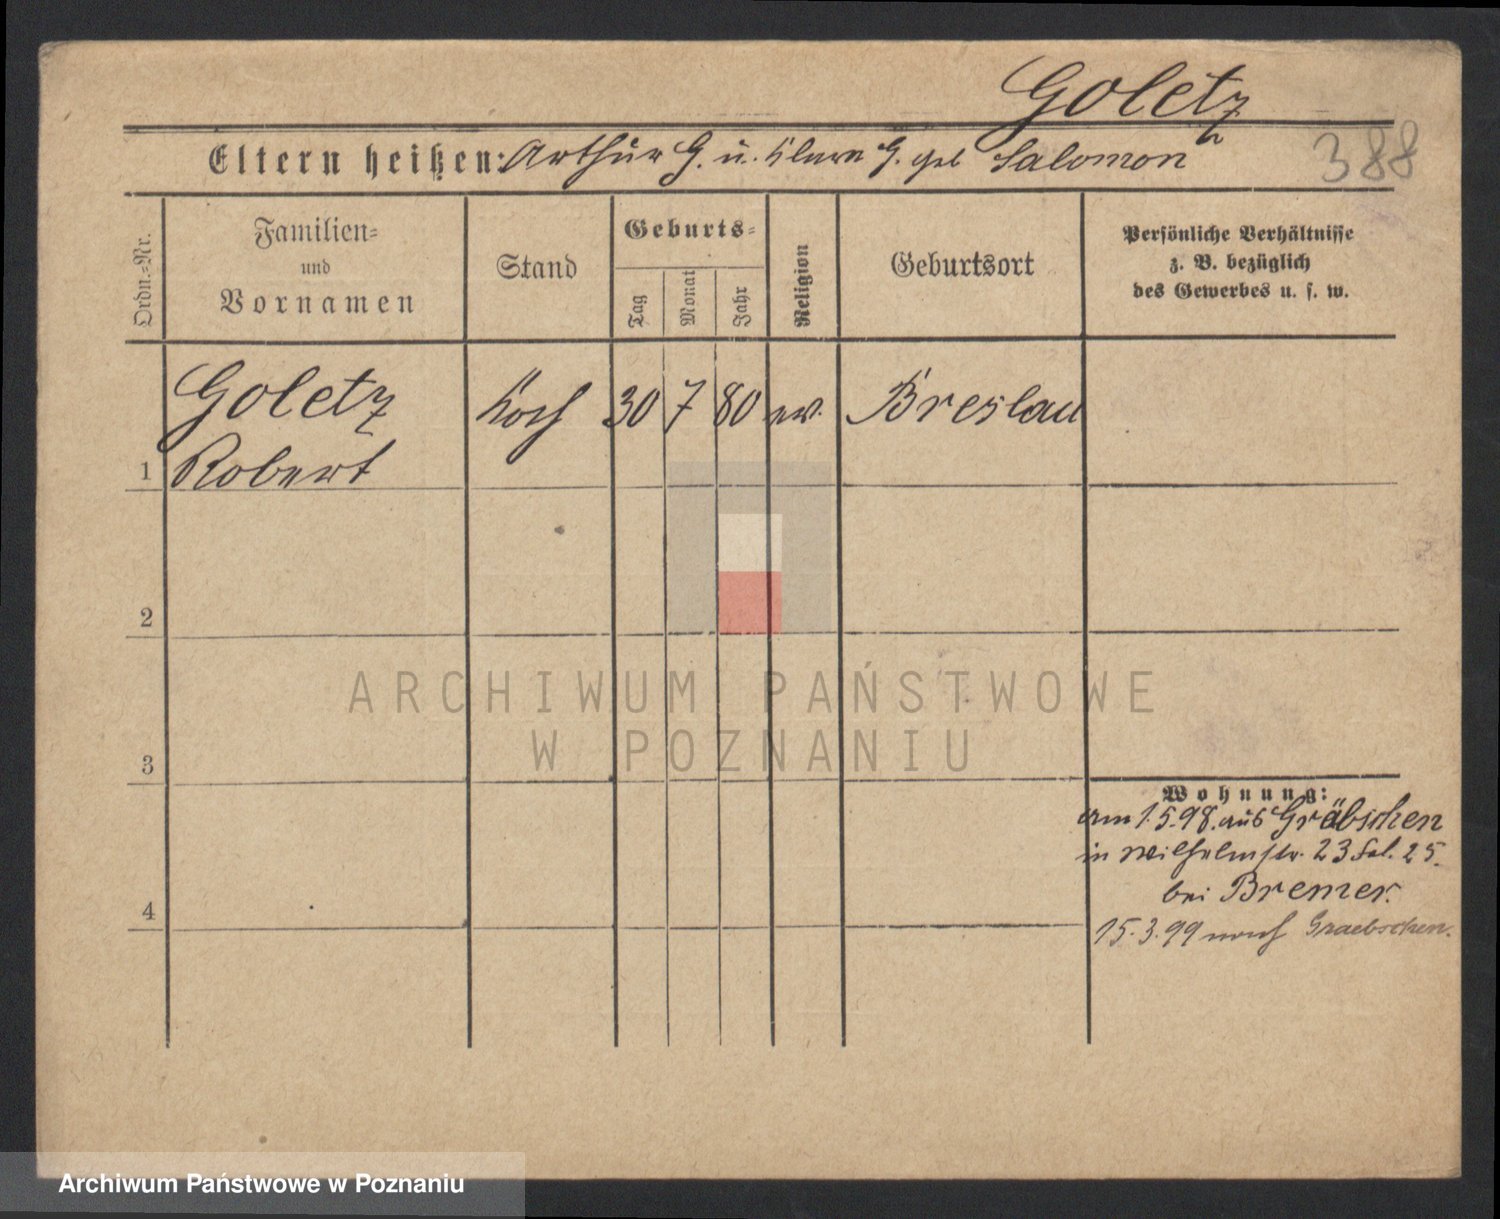 Goletz
388
Eltern heißen: Arthur G. u. Klara G. geb Salomon
Ordn.-Nr.
Familien-
und
Vornamen
Stand
Geburts-
Tag
Monat
Jahr
Religion
Geburtsort
Persönliche Verhältnisse
z. B. bezüglich
des Gewerbes u. s. w.
Goletz
Robert
Koch
30
7
80
ev.
Breslau
1
2
3
4
Wohnung:
am 1.5.98. aus Gräbschen
in Wilhelmstr. 23 25.
bei Bremer.
15.3.99 nach Graebschen.
ARCHIWUM PAŃSTWOWE
W POZNANIU
Archiwum Państwowe w Poznaniu